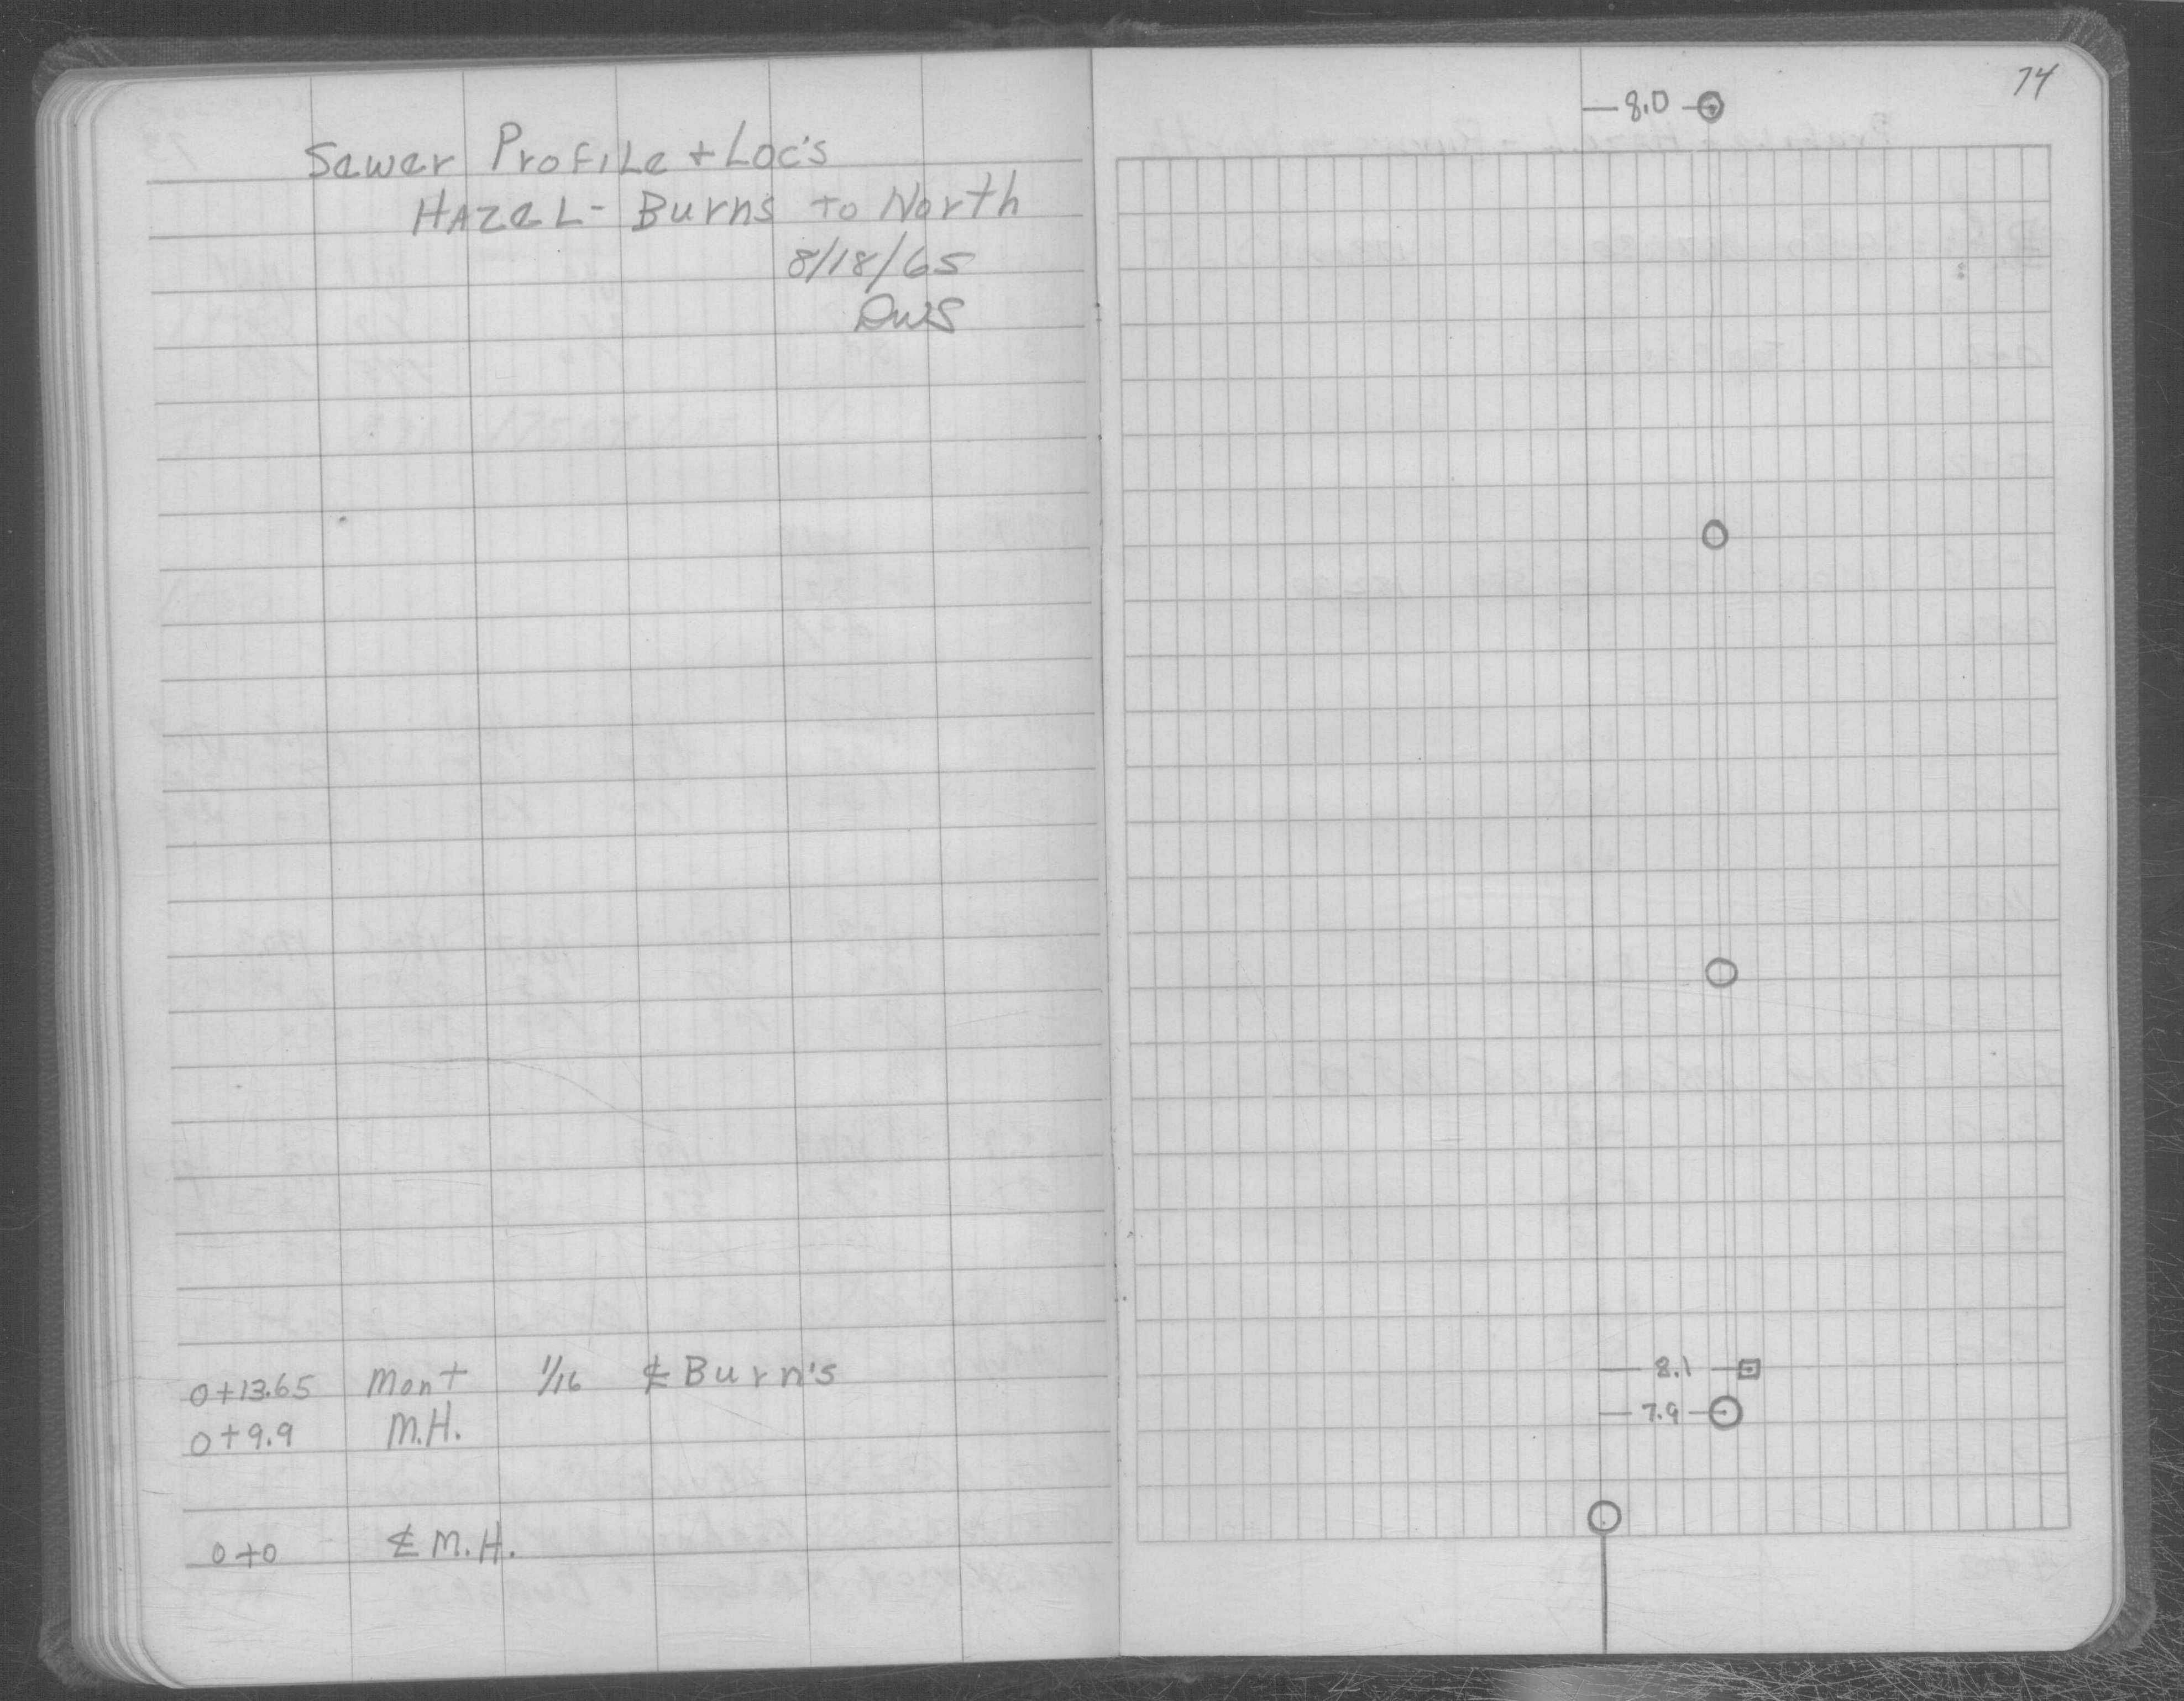 Sewer Profile + Loc's
Hazel - Burns to North
8/18/65
DWS
0+13.65 Mont 1/16 ₵ Burn's
0+9.9 M.H.
0+0 ₵ M.H.
74
8.0
8.1
7.9